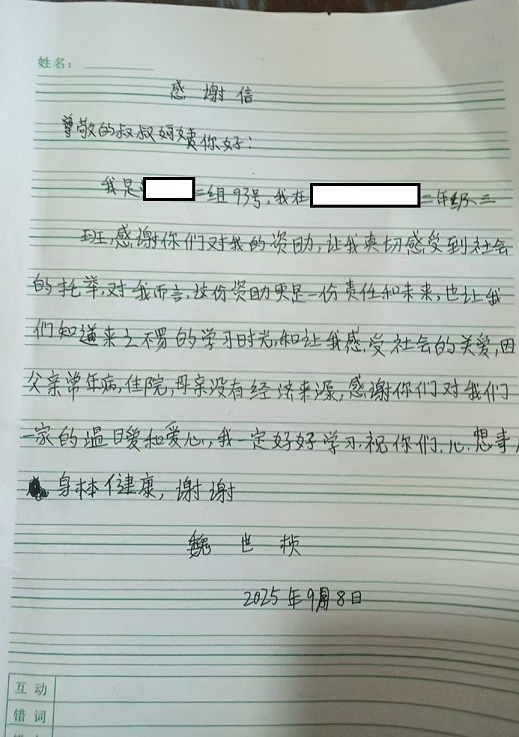 姓名：
感谢信
尊敬的叔叔婶婶你好：
我是 二组93号。我在 二年级三
班，感谢你们对我的资助，让我真切感受到社会
的托举，对我而言，这份资助更是一份责任和未来，也让我
们知道来之不易的学习时光，和让我感受社会的关爱，因
父亲常年病，住院，母亲没有经济来源，感谢你们对我们
一家的温暖和爱心，我一定好好学习，祝你们，心想事
身体健康，谢谢
魏世桢
2025年9月8日
互动
错词